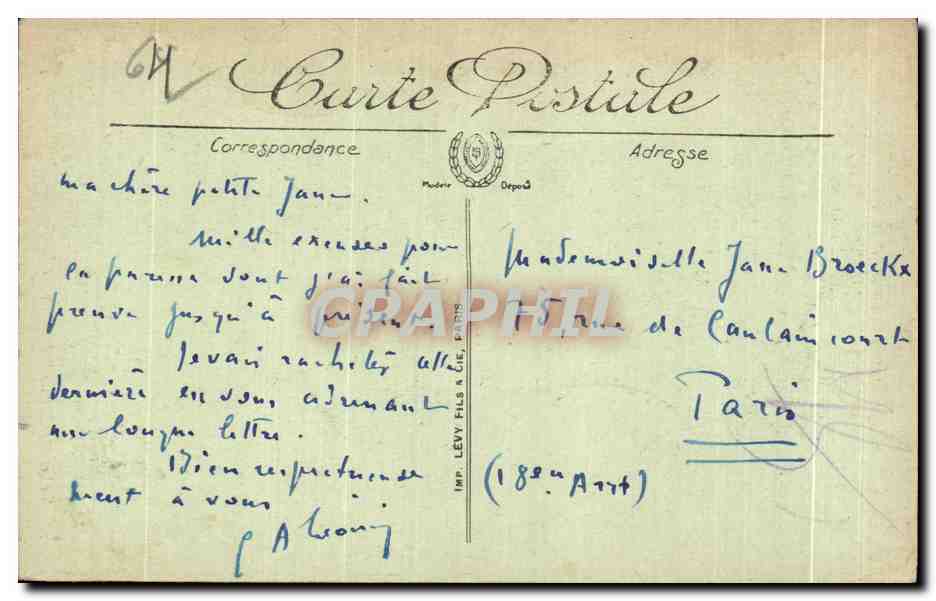 64
Carte Postale
Correspondance
Adresse
Modèle Déposé
ma chère petite Jane.
Mille excuses pour
la paresse dont j'ai fait
preuve jusqu'à présent.
Je vais racheter cette
dernière en vous adressant
une longue lettre.
Bien respectueuse
ment à vous
IMP. LÉVY FILS & CIE, PARIS
Mademoiselle Jane Broeckx
75 rue de Caulaincourt
Paris
(18em Arrt)
CRAPHIL